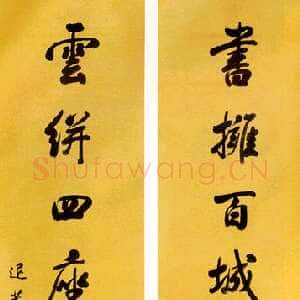 書擁百城
雲絣四座
Shufawang.CN